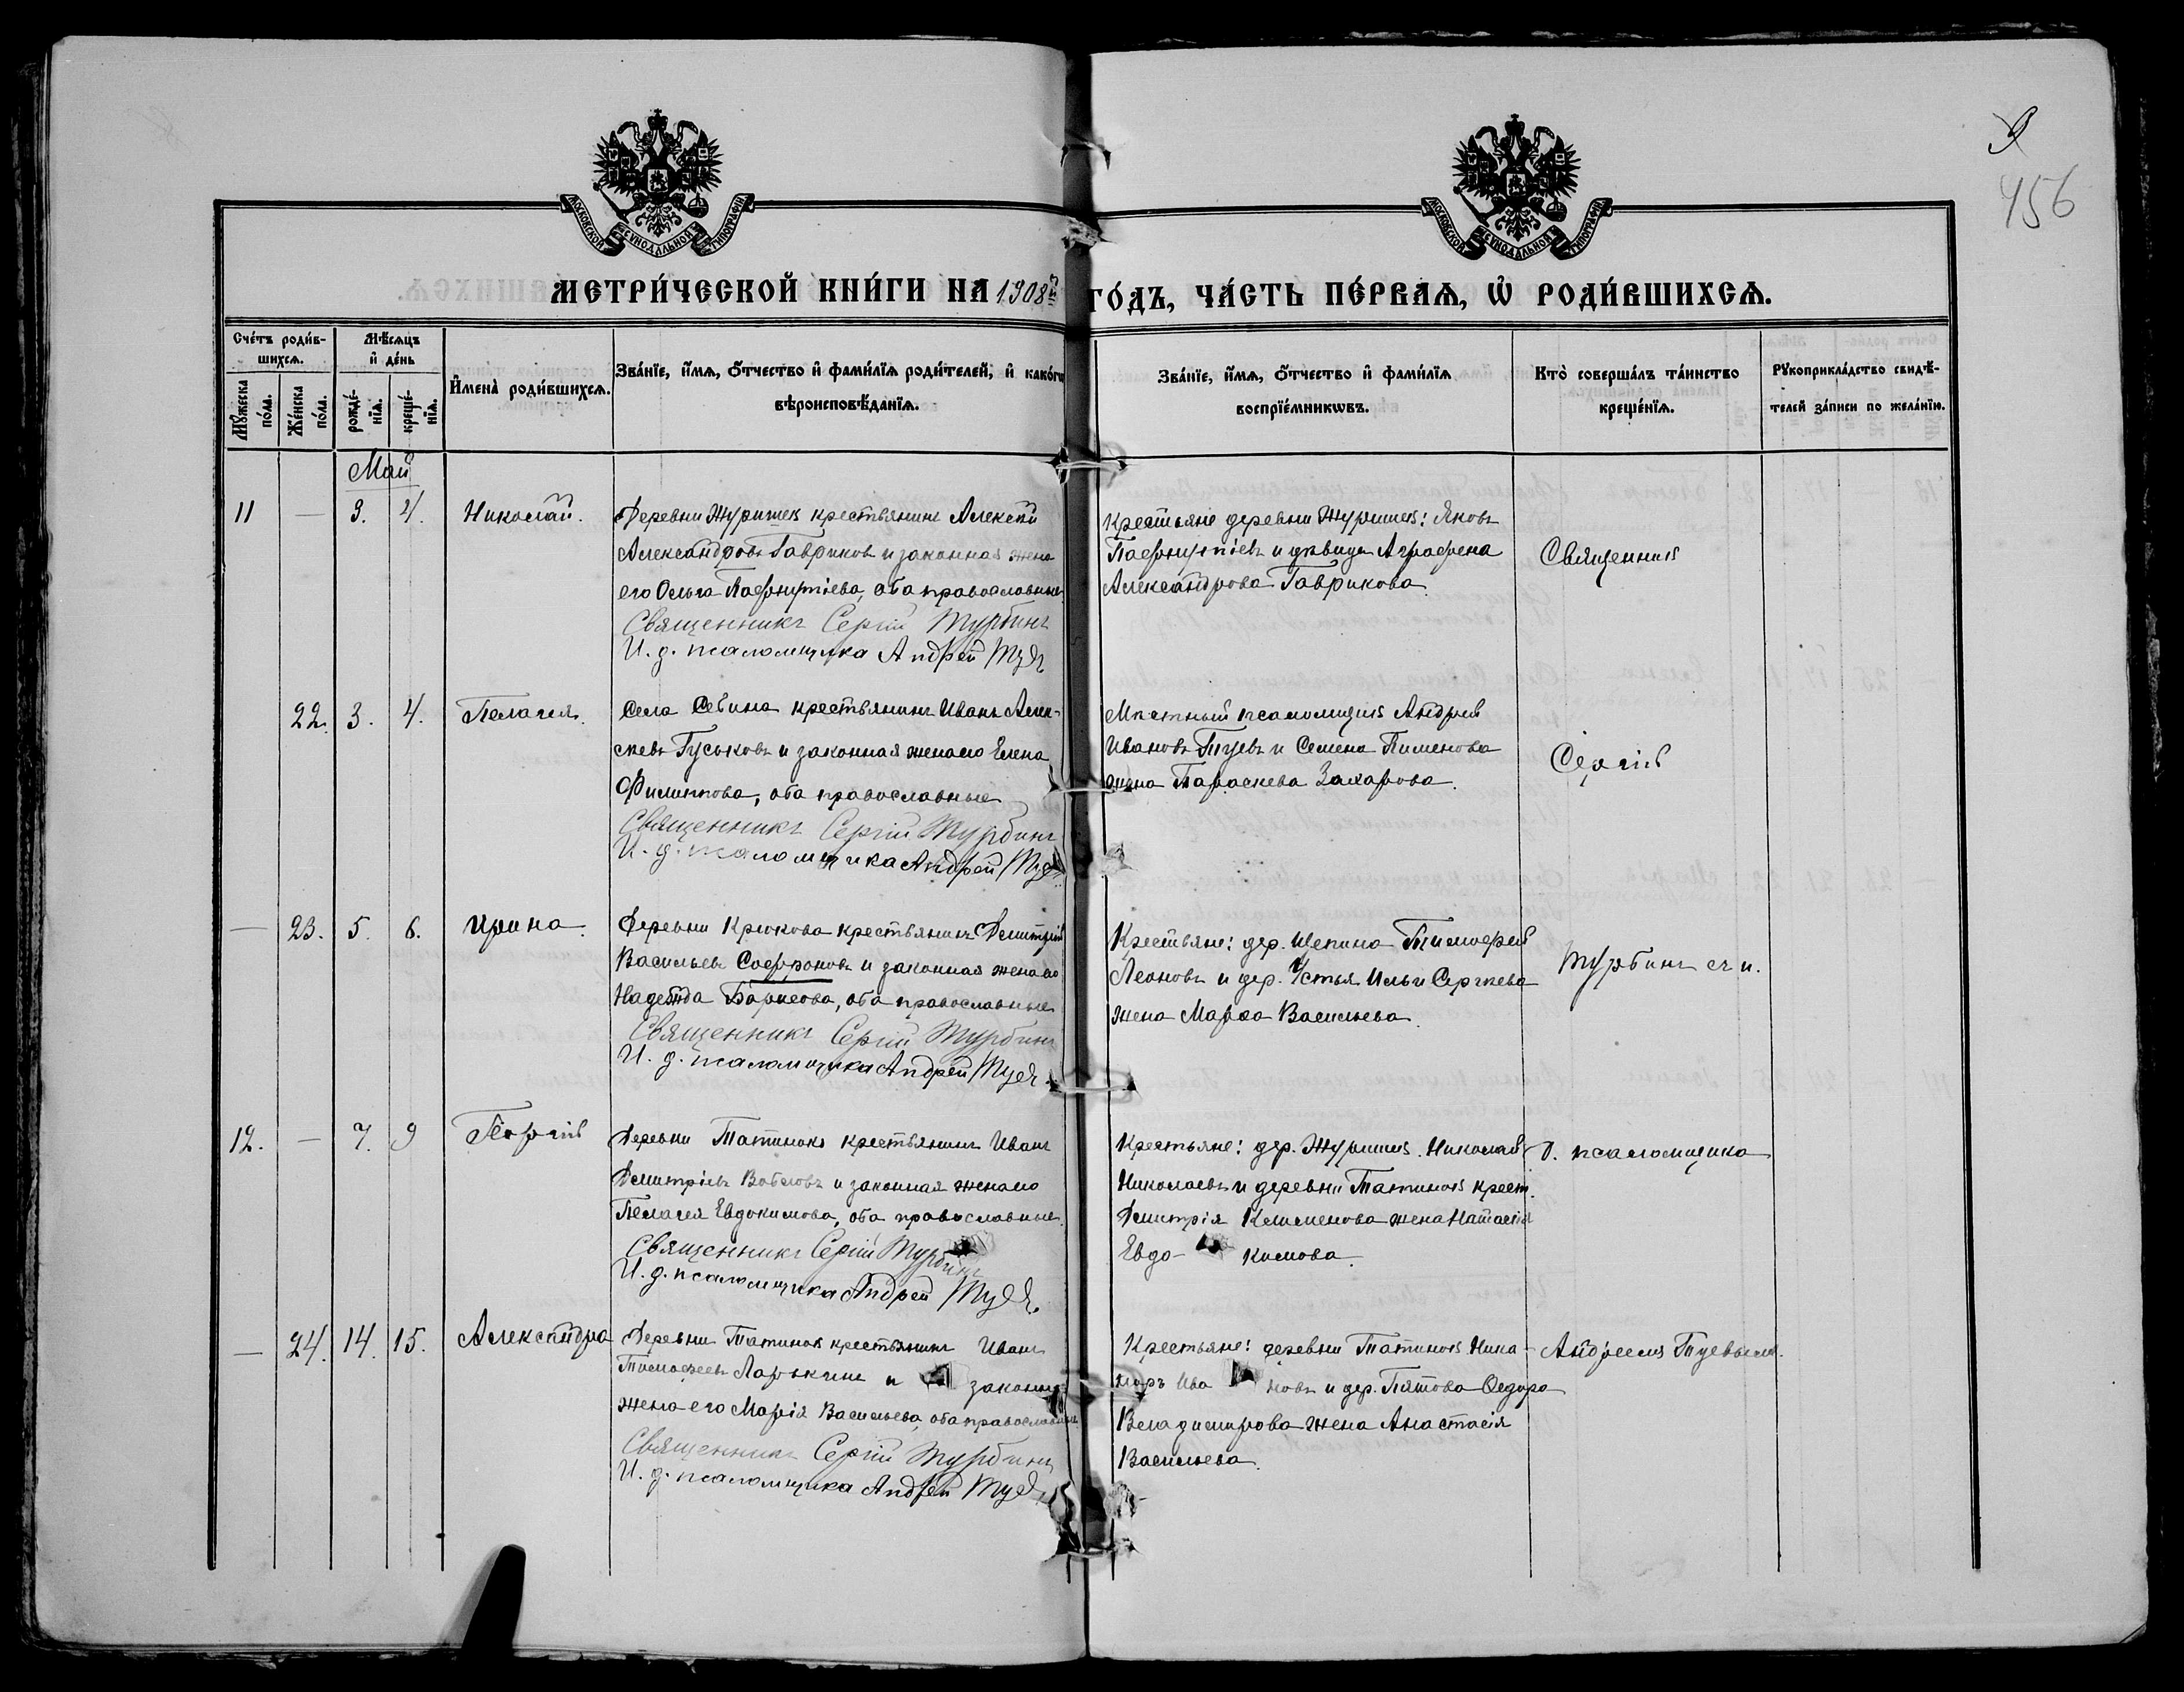 9
456
МОСКОВСКОЙ СѴНОДАЛЬНОЙ ТИПОГРАФІИ
МОСКОВСКОЙ СѴНОДАЛЬНОЙ ТИПОГРАФІИ
МЕТРИ́ЧЕСКОЙ КНИ́ГИ НА 1908й ГО́ДЪ, ЧА́СТЬ ПЕ́РВАѦ, Ѽ РОДИ́ВШИХСѦ.
Сче́тъ роди́в-
шихсѧ.
Мꙋ́жеска по́ла.
Же́нска по́ла.
Мѣ́сѧцъ
и҆ де́нь
рожде́-нїѧ.
креще́-нїѧ.
И҆мена̀ роди́вшихсѧ.
Зва́нїе, и҆́мѧ, ѻ҆́тчество и҆ фами́лїѧ роди́телей, и҆ како́гѡ
вѣроисповѣ́данїѧ.
Зва́нїе, и҆́мѧ, ѻ҆́тчество и҆ фами́лїѧ
воспрїе́мникѡвъ.
Кто̀ соверша́лъ та́инство
креще́нїѧ.
Рꙋкоприкла́дство свидѣ́-
телей за́писи по жела́нїю.
Май
11 — 3. 4. Николай.
Деревни Журишек крестьянинъ Алексѣй
Александровъ Гавриковъ и законная жена
его Ольга Пафнутіева, оба православные
Священникъ Сергій Турбинъ
И. д. псаломщика Андрей Туевъ
Крестьяне деревни Журишек: Яковъ
Пафнутіевъ и дѣвица Аграфена
Александрова Гаврикова.
Священник
22. 3. 4. Пелагея.
Села Севина крестьянинъ Иванъ Алек-
сѣевъ Гуськовъ и законная жена его Елена
Филиппова, оба православные
Священникъ Сергій Турбинъ
И. д. псаломщика Андрей Туевъ
Мѣстный псаломщик Андрей
Ивановъ Туевъ и Семена Пименова
жена Параскева Захарова.
Сергій
— 23. 5. 6. Ирина.
Деревни Крюкова крестьянинъ Дмитрій
Васильевъ Софроновъ и законная жена его
Надежда Борисова, оба православные
Священникъ Сергій Турбинъ
И. д. псаломщика Андрей Туевъ.
Крестьяне: дер. Щепина Тимофей
Леоновъ и дер. Устья Ильи Сергѣева
жена Марѳа Васильева.
Турбинъ съ и.
12. — 7. 9 Георгій
Деревни Татинок крестьянинъ Иванъ
Дмитріевъ Вобловъ и законная жена его
Пелагея Евдокимова, оба православные.
Священникъ Сергій Турбинъ
И. д. псаломщика Андрей Туевъ.
Крестьяне: дер. Журишек. Николай
Николаевъ и деревни Татинок крест.
Дмитрія Клименова жена Наталія
Евдо- кимова.
д. псаломщика
— 24. 14. 15. Александра
Деревни Татинок крестьянинъ Иванъ
Тимофеевъ Ларькинъ и законная
жена его Марія Васильева, оба православные
Священникъ Сергій Турбинъ
И. д. псаломщика Андрей Туевъ
Крестьяне: деревни Татинок Ника-
норъ Ива новъ и дер. Пятова Ѳедора
Владимирова жена Анастасія
Васильева.
Андреемъ Туевымъ.